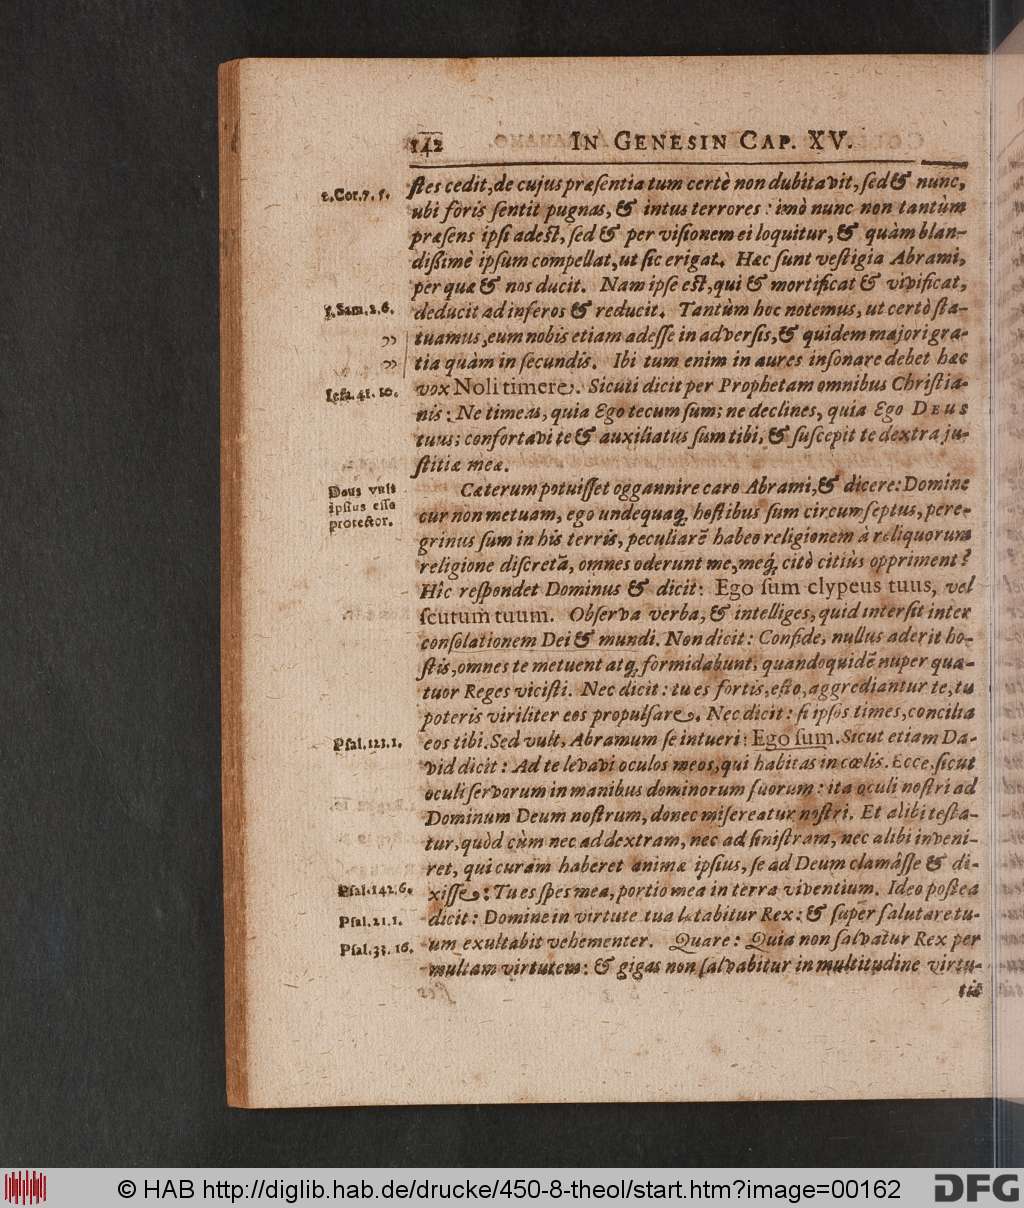 142 IN GENESIN CAP. XV.
2. Cor. 7, 5. ſtes cedit, de cujus præſentia tum certè non dubitavit, ſed & nunc,
ubi foris ſentit pugnas, & intus terrores: imò nunc non tantùm
præſens ipſi adeſt, ſed & per viſionem ei loquitur, & quàm blan-
dißimè ipſum compellat, ut ſic erigat. Hæc ſunt veſtigia Abrami,
per quæ & nos ducit. Nam ipſe eſt, qui & mortificat & vivificat,
1. Sam. 2. 6. deducit ad inferos & reducit. Tantùm hoc notemus, ut certò ſta-
„ tuamus, eum nobis etiam adeſſe in adverſis, & quidem majori gra-
„ tia quàm in ſecundis. Ibi tum enim in aures inſonare debet hæc
Ieſa. 41. 10. vox Noli timere. Sicuti dicit per Prophetam omnibus Chriſtia-
nis: Ne timeas, quia Ego tecum ſum; ne declines, quia Ego DEUS
tuus; confortavi te & auxiliatus ſum tibi, & ſuſcepit te dextra ju-
ſtitiæ meæ.
Deus vult Cæterum potuiſſet oggannire caro Abrami, & dicere: Domine
ipſius eſſe cur non metuam, ego undequaq; hoſtibus ſum circumſeptus, pere-
protector. grinus ſum in his terris, peculiarē habeo religionem à reliquorum
religione diſcretā, omnes oderunt me, meq́; citò citiùs oppriment?
Hîc reſpondet Dominus & dicit: Ego ſum clypeus tuus, vel
ſcutum tuum. Obſerva verba, & intelliges, quid interſit inter
conſolationem Dei & mundi. Non dicit: Confide, nullus aderit ho-
ſtis, omnes te metuent atq; formidabunt, quandoquidē nuper qua-
tuor Reges viciſti. Nec dicit: tu es fortis, eſto, aggrediantur te, tu
poteris viriliter eos propulſare. Nec dicit: ſi ipſos times, concilia
Pſal. 123. 1. eos tibi. Sed vult, Abramum ſe intueri: Ego ſum. Sicut etiam Da-
vid dicit: Ad te levavi oculos meos, qui habitas in cœlis. Ecce, ſicut
oculi ſervorum in manibus dominorum ſuorum: ita oculi noſtri ad
Dominum Deum noſtrum, donec miſereatur noſtri. Et alibi teſta-
tur, quòd cùm nec ad dextram, nec ad ſiniſtram, nec alibi inveni-
ret, qui curam haberet animæ ipſius, ſe ad Deum clamâſſe & di-
Pſal. 142. 6. xiſſe: Tu es ſpes mea, portio mea in terra viventium. Ideo poſtea
Pſal. 21. 1. dicit: Domine in virtute tua lætabitur Rex: & ſuper ſalutare tu-
Pſal. 33. 16. um exultabit vehementer. Quare: Quia non ſalvatur Rex per
multam virtutem: & gigas non ſalvabitur in multitudine virtu-
tis
© HAB http://diglib.hab.de/drucke/450-8-theol/start.htm?image=00162
DFG